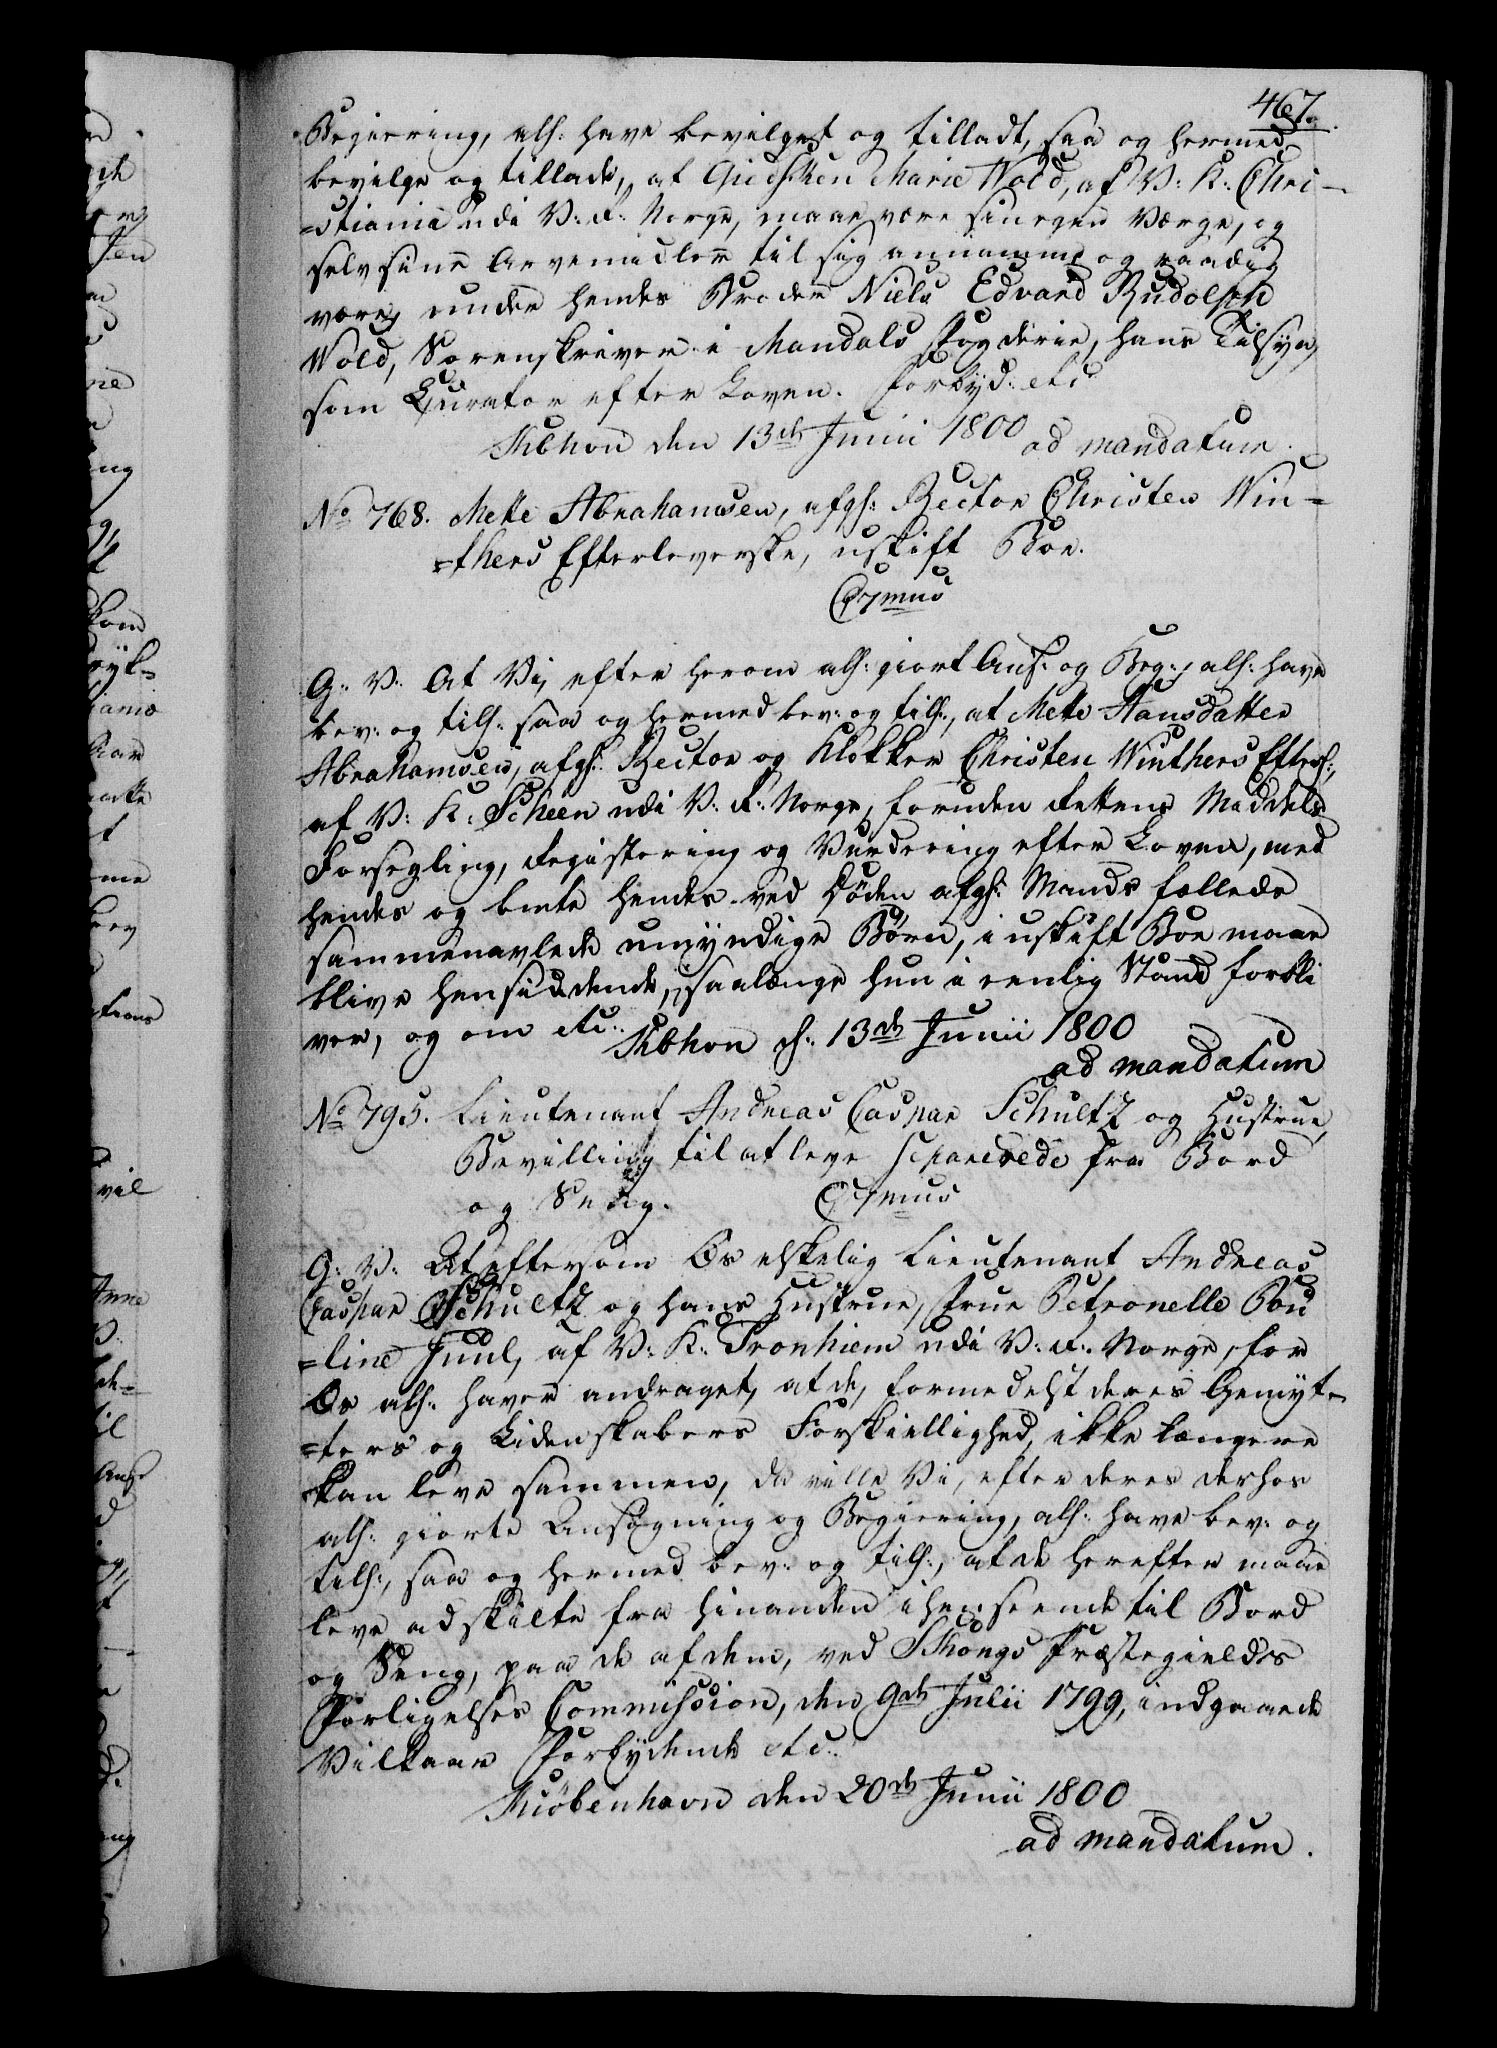 467.
Begiering, alh: have bevilget og tilladt, saa og hermed
bevilge og tillade, at Giedsken Marie Wold, af V: K: Chri-
=stiania udi V: R: Norge, maae være sin egen Værge, og
selv sine Arvemidler til sig annamme og raadig
være, under hendes Broder Niels Edvard Rudolph
Wold, Sorenskriver i Mandals Fogderie, hans Tilsyn,
som Curator efter Loven. Forbyd: etc:
Kbhvn den 13de Junii 1800 ad mandatum.
No 768. Mette Abrahamsen, afgl: Rector Christen Win-
=thers Efterleverske, uskift Boe.
C7mus
G: V: At Vi, efter herom alh: giort Ans: og Beg:, alh: have
bev: og till: saa og hermed bev: og till:, at Mette Hansdatter
Abrahamsen, afgl: Rector og Klokker Christen Winthers Efterl:,
af V: K: Scheen udi V: R: Norge, foruden Rettens Middels
Forsegling, Registering og Vurdering efter Loven, med
hendes og bemte hendes ved Døden afgl: Mands fælleds
sammenavlede umyndige Børn, i uskift Boe maae
blive hensiddende, saalænge hun i enlig Stand forbli
ver, og om etc:
Kbhvn d: 13de Junii 1800
ad mandatum
No 795. Lieutenant Andreas Caspar Schultz og Hustrue,
Bevilling til at leve separerede fra Bord
og Seng. C7mus
G: V: At eftersom Os elskelig Lieutenant Andreas
Caspar Schultz og hans Hustrue, Frue Petronelle Pou
=line Juul, af V: K: Tronhiem udi V: R: Norge, for
Os alh: haver andraget, at de, formedelst deres Gemyt-
=ters og Lidenskabers Forskiellighed, ikke længere
kan leve sammen, da ville Vi, efter deres derhos
alh: giorte Ansøgning og Begiering, alh: have bev: og
till:, saa og hermed bev: og till:, at de herefter maae
leve adskilte fra hinanden i henseende til Bord
og Seng, paa de af dem, ved Skongs Præstegields
Forligelses Commission, den 9de Julii 1799, indgaaede
Vilkaar Forbydende etc:
Kiøbenhavn den 20de Junii 1800
ad mandatum.